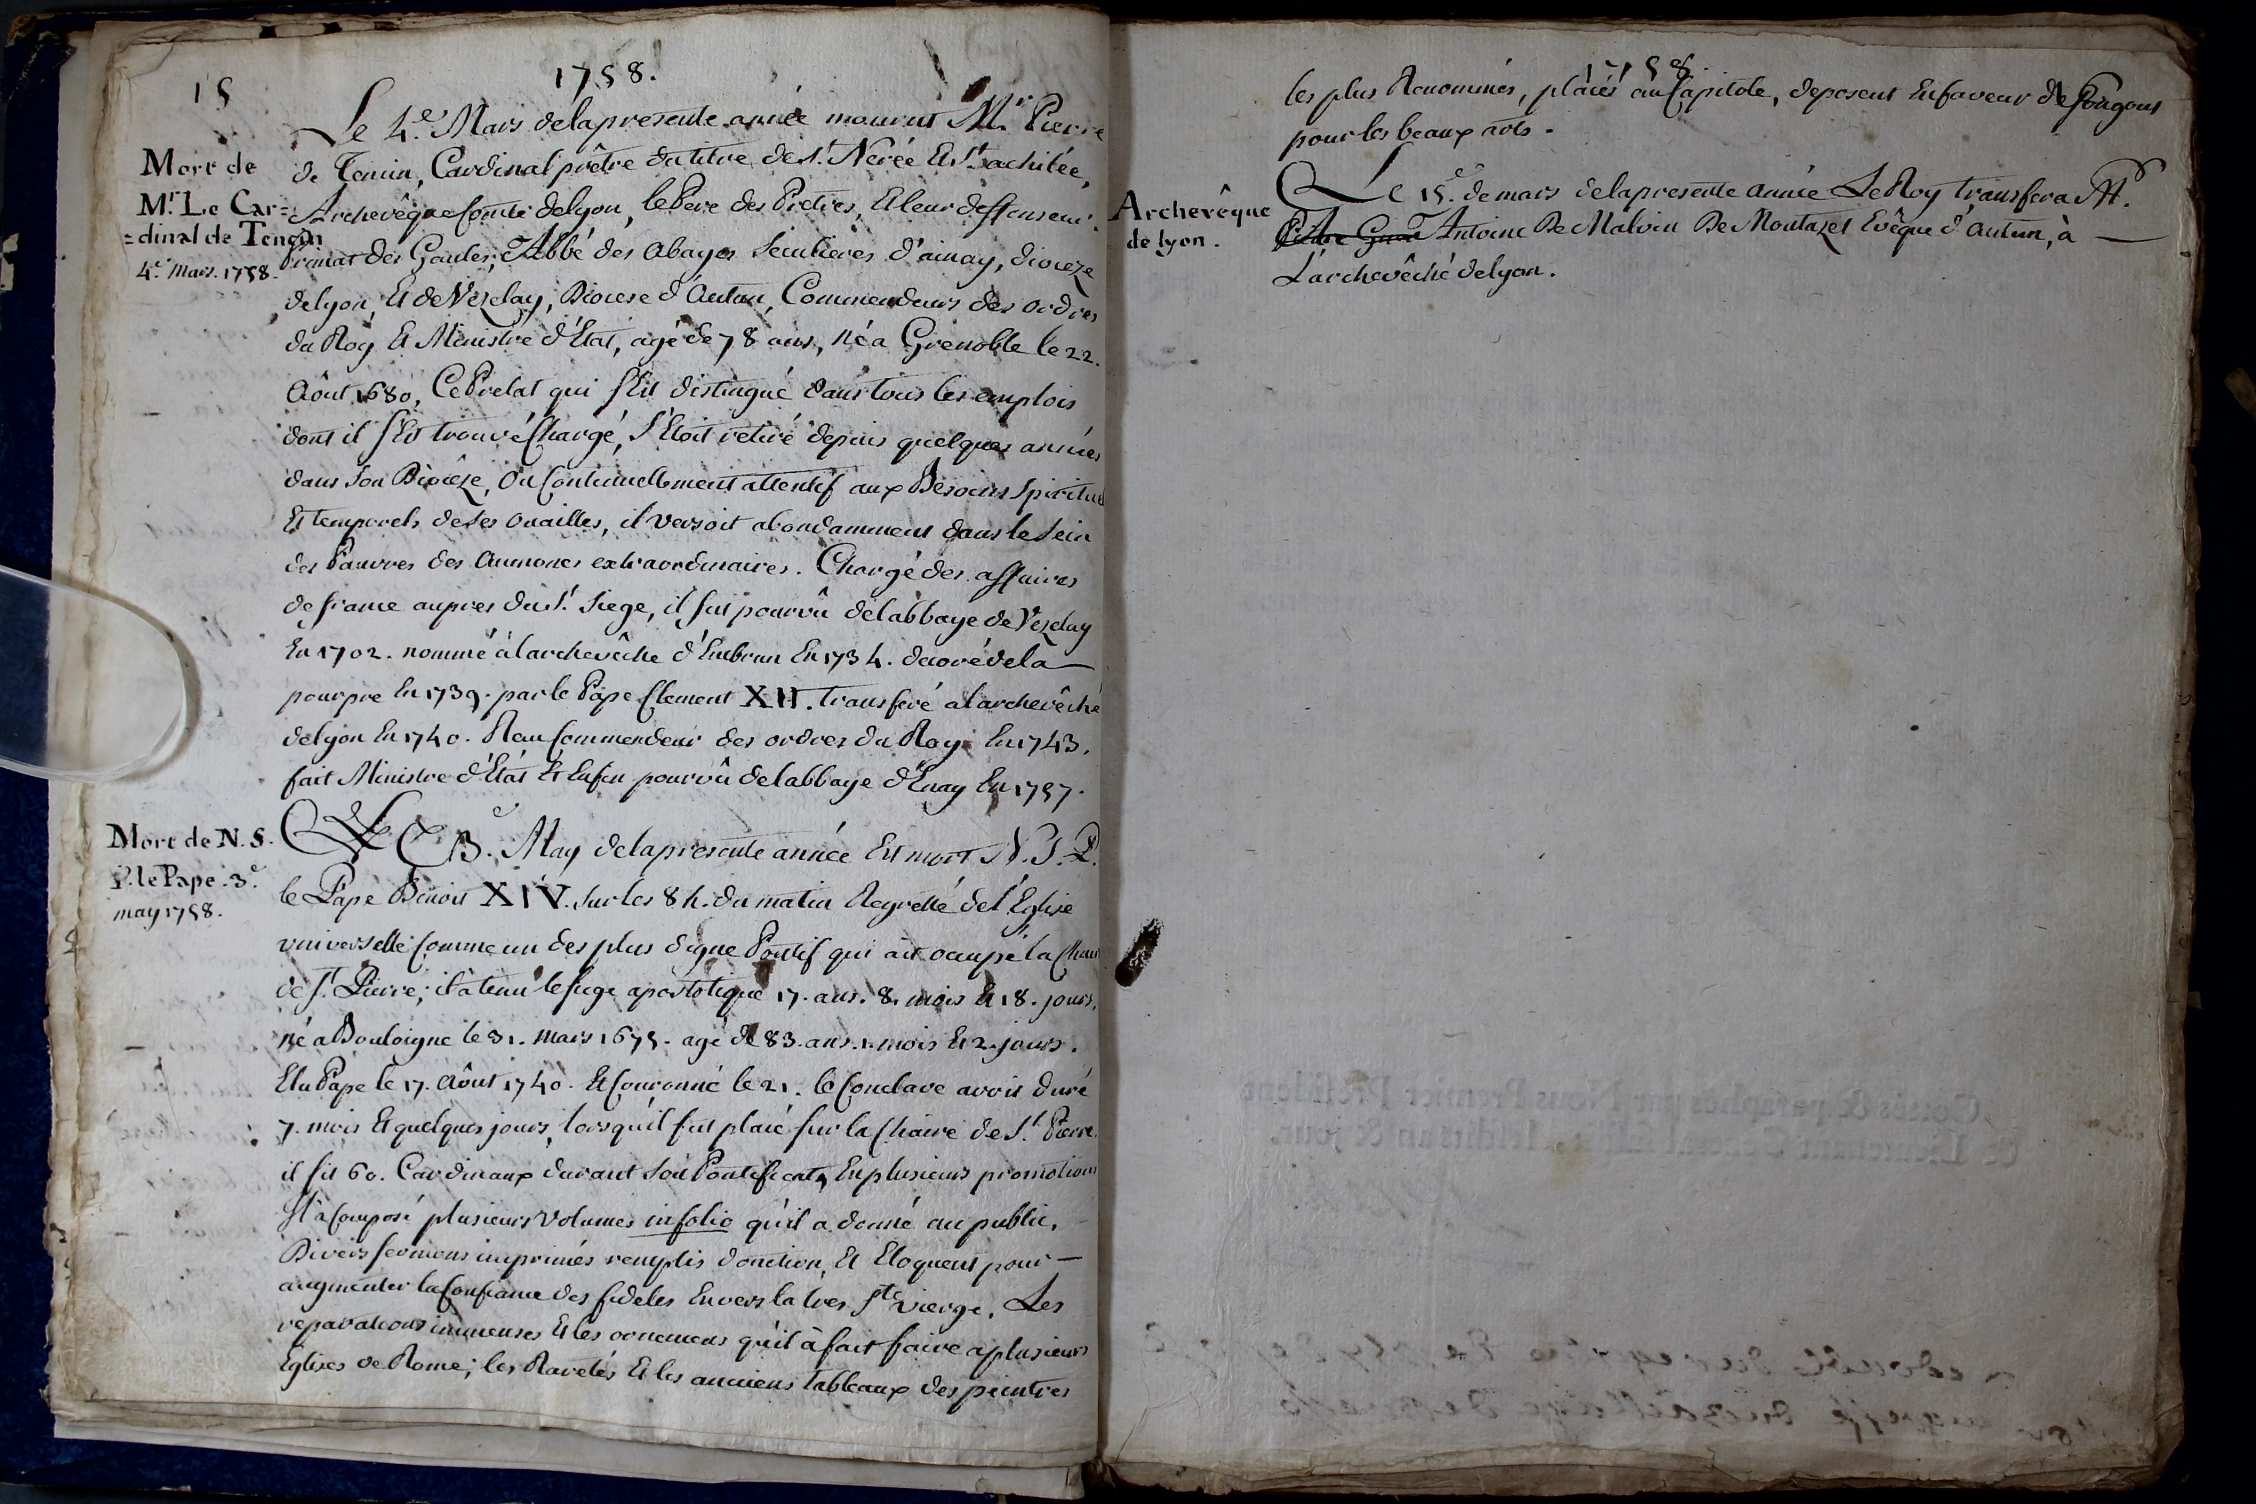 15
1758.
Le 4.e Mars delapresente année mourut Mr. Pierre
Mort de
Mr. Le Car=
=dinal de Tencin
4.e Mars. 1758.
de Tencin, Cardinal prêtre dutitre de St. Nerée Et St. achilée,
Archevêque Comte delyon, le Pere des Pretres, Et leur deffenseur.
primat des Gaules, Abbé des abayes Seculieres d'ainay, dioceze
delyon, Et de Vezelay, Diocese d'Autun, Commendeurs des ordres
du Roy Et Ministre d'Etat, agé de 78 ans, né a Grenoble le 22.
Aôut 1680, Ce Prelat qui s'Est distingué dans tous les emplois
dont il s'Est trouvé Chargé, s'Etoit retiré depuis quelques années
dans son Diocéze, ou Continuellement attentif aux Besoins Spirituels
Et temporels de ses ouailles, il versoit abondamment dans le Sein
des Pauvres des aumones extraordinaires. Chargé des affaires
de france aupres du St. Siege, il fut pourvû delabbaye de Vezelay
En 1702. nommé à l'archevêche d'Embrun En 1734. decoré dela
pourpre En 1739. par le Pape Clement XII. transferé a l'archevêché
delyon En 1740. Reçu Commendeur des ordres du Roy En 1743.
fait Ministre d'Etat Et Enfin pourvû de l'abbaye d'Enay En 1757.
Mort de N. S.
P. le Pape. 3.e
may 1758.
Le 3.e May delapresente année Est mort N. S. P.
le Pape Benoit XIV. sur les 8 h. du matin Regretté de l'Eglise
universelle Comme un des plus digne Pontif qui ait occupé la Chaire
de St. Pierre; il a tenu le siege apostolique 17. ans. 8. mois Et 18. jours,
né a Bouloigne le 31. Mars 1675. agé de 83. ans. 1. mois Et 2. jours.
Elu Pape le 17. Aôut 1740. Et Couronné le 21. le Conclave avoit duré
7. mois Et quelques jours, lorsqu'il fut placé sur la Chaire de St. Pierre.
il fit 60. Cardinaux durant son Pontificat, En plusieurs promotions
Il a Composé plusieurs volumes infolio qu'il a donné au public,
Divers sermons imprimés remplis d'onction, Et Eloquent pour
augmenter la Confiance des fideles Envers la tres Ste. vierge. Les
reparations immenses Et les ornemens qu'il à fait faire a plusieurs
Eglises de Rome; les Raretés Et les anciens tableaux des peintres
1758.
les plus Renommés, placés au Capitole, deposent En faveur de ses gouts
pour les beaux arts.
Archevêque
de lyon.
Le 15.e de mars delapresente année Le Roy transfera Mr.
Antoine De Malvin De Montazet Evêque d'autun, à
L'archevêché delyon.
Cottés & paraphés par Nous Premier Président